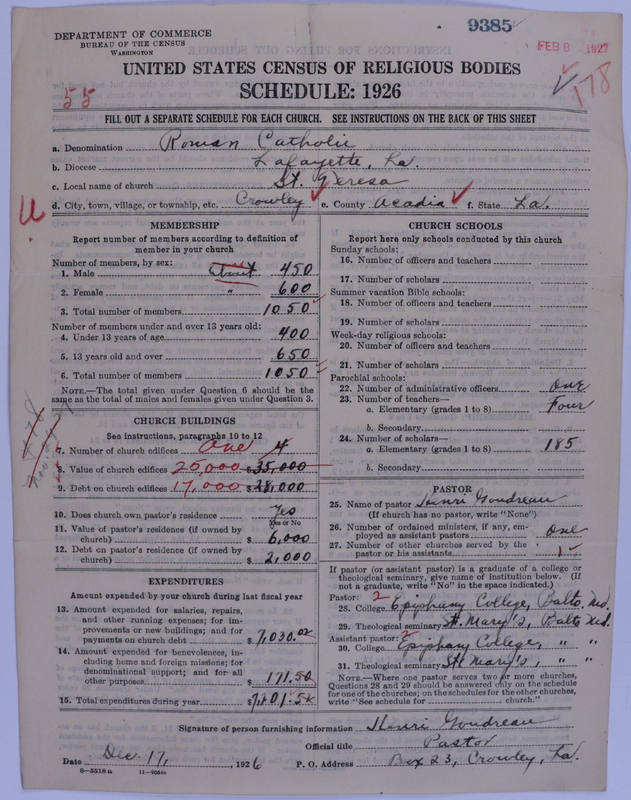 DEPARTMENT OF COMMERCE
BUREAU OF THE CENSUS
WASHINGTON
9385
FEB 8 1927
178
55
UNITED STATES CENSUS OF RELIGIOUS BODIES
SCHEDULE: 1926
FILL OUT A SEPARATE SCHEDULE FOR EACH CHURCH. SEE INSTRUCTIONS ON THE BACK OF THIS SHEET
a. Denomination Roman Catholic
b. Diocese Lafayette, La.
c. Local name of church St. Teresa
d. City, town, village, or township, etc. Crowley e. County Acadia f. State La.
MEMBERSHIP
Report number of members according to definition of
member in your church
Number of members, by sex:
1. Male about 450
2. Female " 600
3. Total number of members 1050
Number of members under and over 13 years old:
4. Under 13 years of age 400
5. 13 years old and over 650
6. Total number of members 1050
NOTE.—The total given under Question 6 should be the
same as the total of males and females given under Question 3.
CHURCH BUILDINGS
See instructions, paragraphs 10 to 12
7. Number of church edifices One 4
8. Value of church edifices 25,000 $35,000
9. Debt on church edifices 17,000 $28,000
10. Does church own pastor's residence Yes
Yes or No
11. Value of pastor's residence (if owned by
church) $ 6,000
12. Debt on pastor's residence (if owned by
church) $ 2,000
EXPENDITURES
Amount expended by your church during last fiscal year
13. Amount expended for salaries, repairs,
and other running expenses; for im-
provements or new buildings; and for
payments on church debt $7,030.02
14. Amount expended for benevolences, in-
cluding home and foreign missions; for
denominational support; and for all
other purposes $ 171.50
15. Total expenditures during year
CHURCH SCHOOLS
Report here only schools conducted by this church
Sunday schools:
16. Number of officers and teachers
17. Number of scholars
Summer vacation Bible schools:
18. Number of officers and teachers
19. Number of scholars
Week-day religious schools:
20. Number of officers and teachers
21. Number of scholars
Parochial schools:
22. Number of administrative officers One
23. Number of teachers—
a. Elementary (grades 1 to 8) Four
b. Secondary
24. Number of scholars—
a. Elementary (grades 1 to 8) 185
b. Secondary
PASTOR
25. Name of pastor Henri Goudreau
(If church has no pastor, write "None")
26. Number of ordained ministers, if any, em-
ployed as assistant pastors One
27. Number of other churches served by the
pastor or his assistants 1
If pastor (or assistant pastor) is a graduate of a college or
theological seminary, give name of institution below. (If
not a graduate, write "No" in the space indicated.)
Pastor: 2
28. College Epiphany College, Balto. Md.
29. Theological seminary St. Mary's, Balto Md.
Assistant pastor: 2
30. College Epiphany College, " "
31. Theological seminary St Mary's, " "
NOTE.—Where one pastor serves two or more churches,
Questions 28 and 29 should be answered only on the schedule
for one of the churches; on the schedules for the other churches,
write "See schedule for church."
Signature of person furnishing information Henri Goudreau
Official title Pastor
Date Dec. 17, 1926 P. O. Address Box 23, Crowley, La.
8-5518a 11-9054